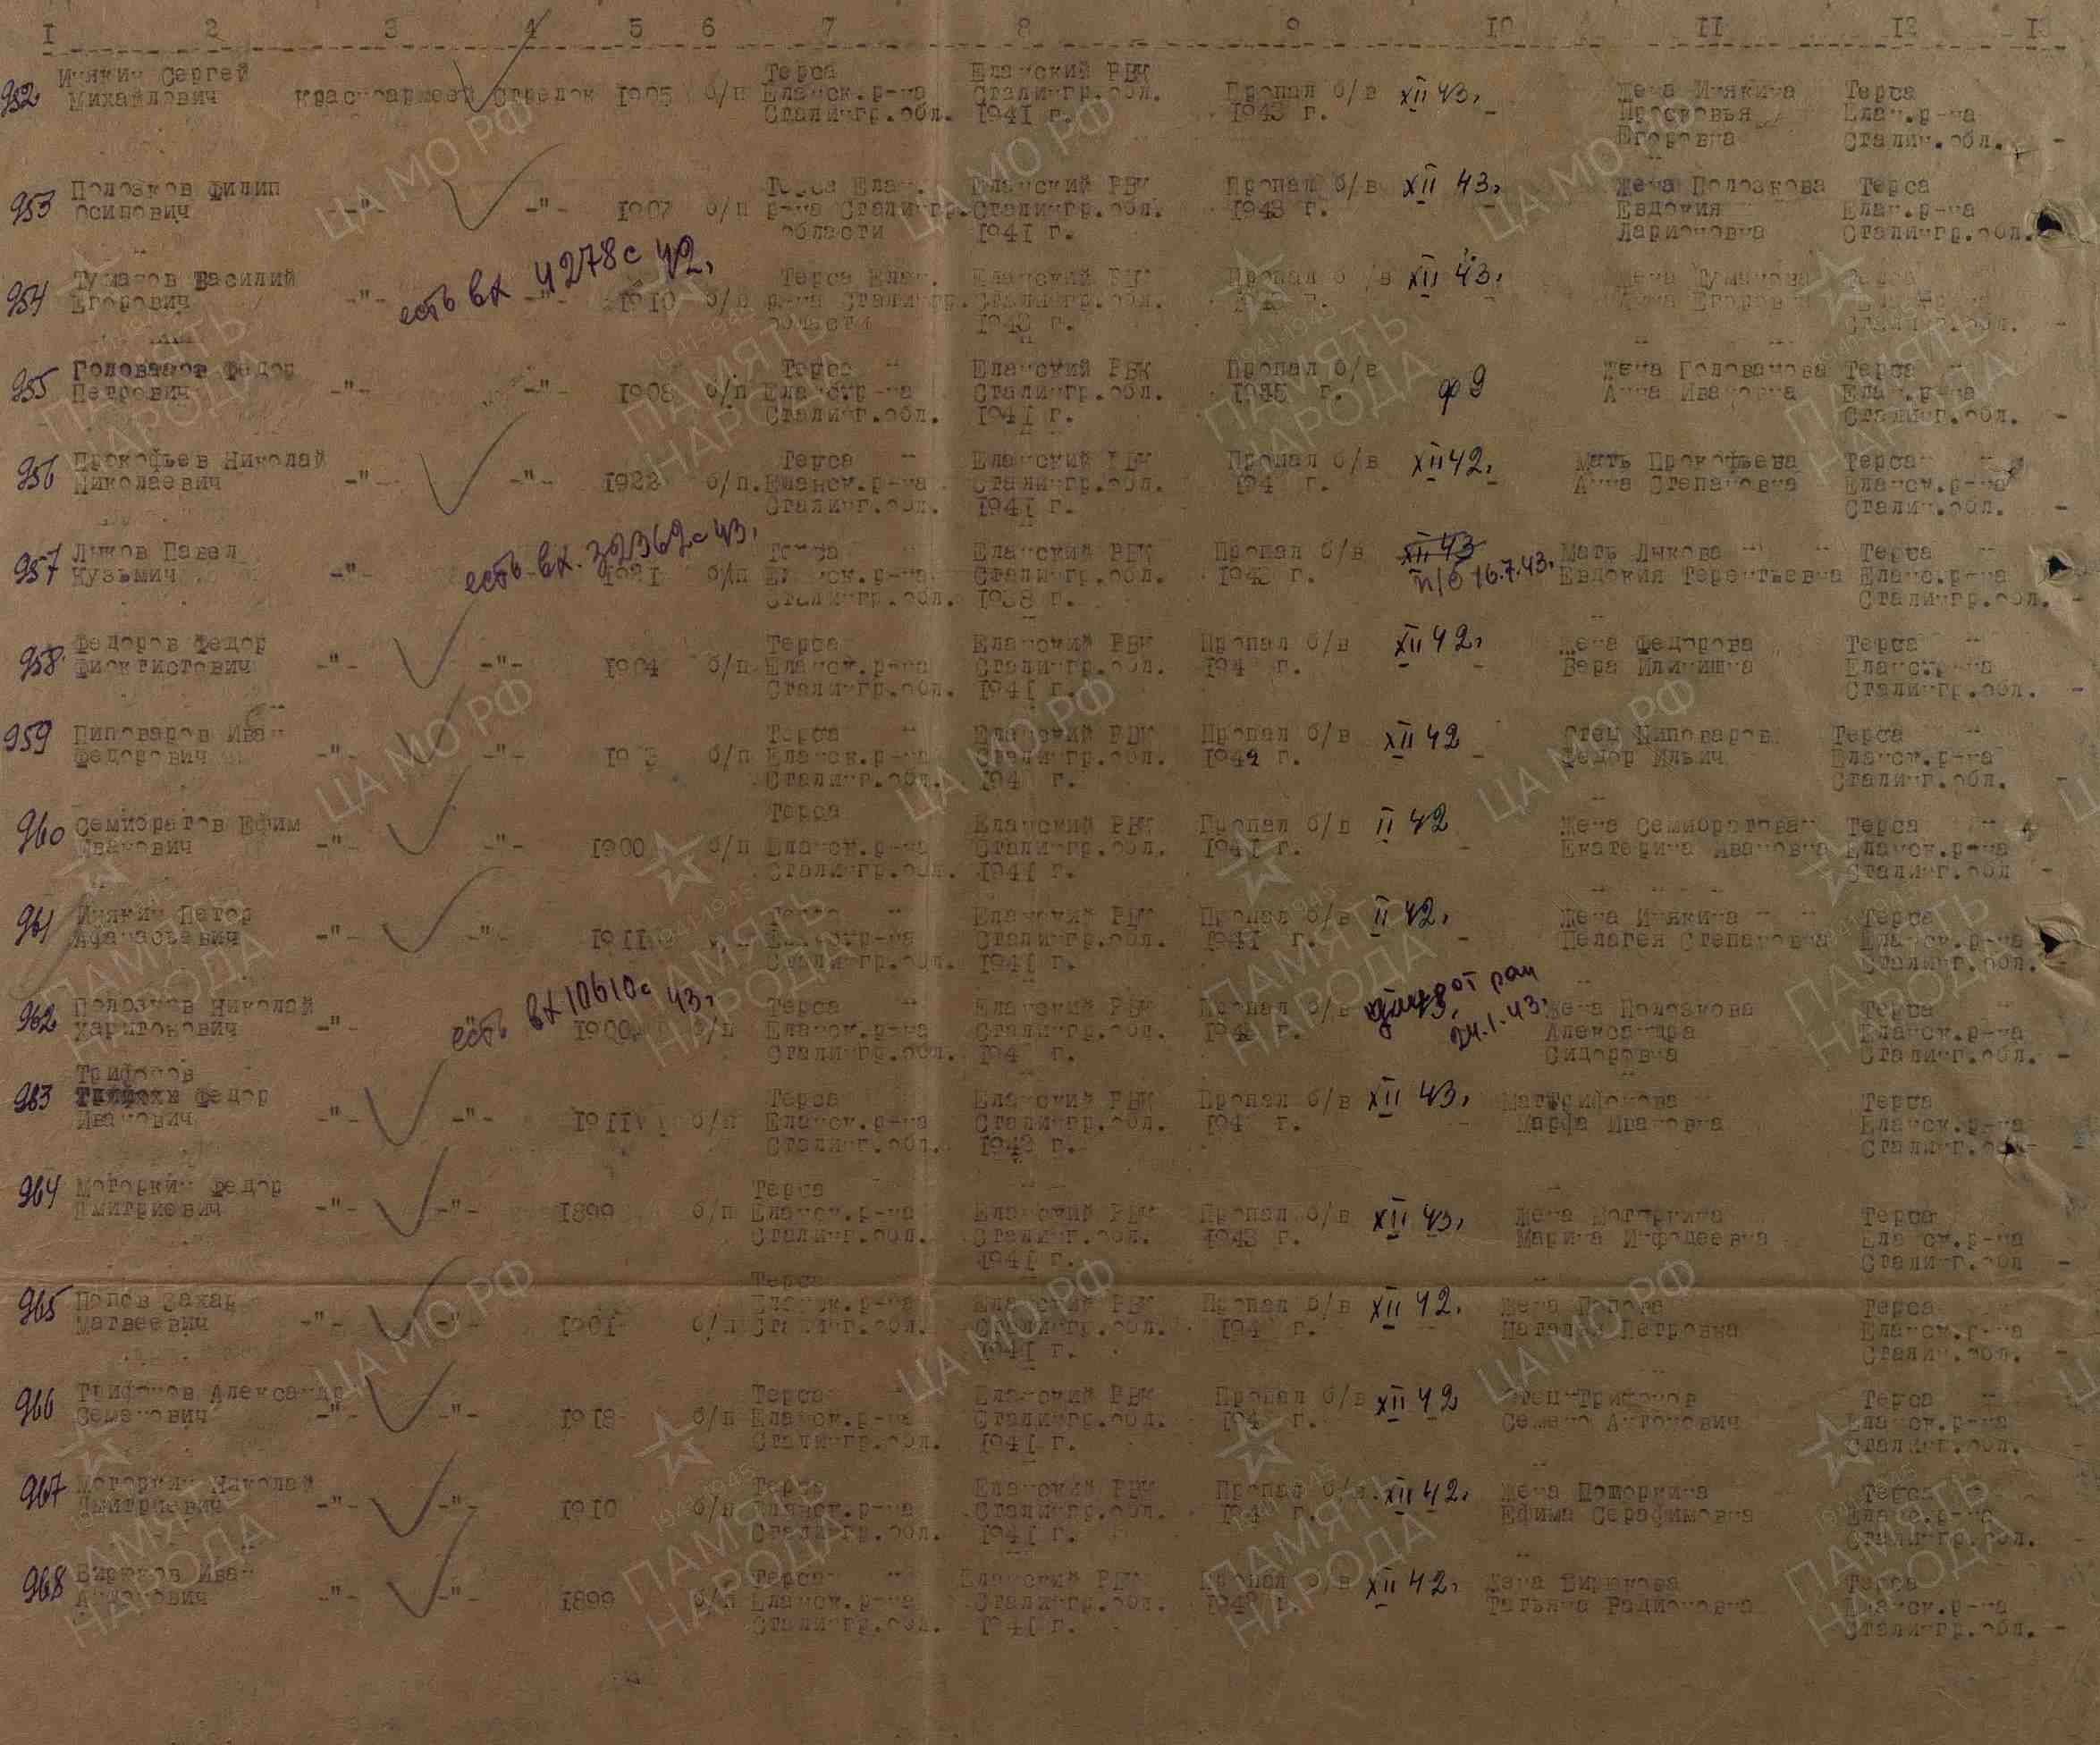 1 2 3 4 5 6 7 8 9 10 11 12 13
952. Инякин Сергей Михайлович Красноармеец Стрелок 1905 б/п Терса Еланск.р-на Сталингр.обл. Еланский РВК Сталингр.обл. 1941 г. Пропал б/в 1943 г. XII 43. Жена Инякина Просковья Егоровна Терса Елан.р-на Сталин.обл. -
953 Полозков Филип Осипович -"- -"- 1907 б/п Терса Елан. р-на Сталингр. области Еланский РВК Сталингр.обл. 1941 г. Пропал б/в 1943 г. XII 43. Жена Полозкова Евдокия Ларионовна Терса Елан.р-на Сталингр.обл.
954 Туманов Василий Егорович -"- есть вх 4278с 42. -"- 1910 б/п Терса Елан. р-на Сталингр. области Еланский РВК Сталингр.обл. Пропал б/в XII 43. Жена Туманова Егоровна Терса Сталингр.обл. -
955 Голованов Федор Петрович -"- -"- 1908 б/п Терса Еланск.р-на Сталинг.обл. Еланский РВК Сталингр.обл. 1941 г. Пропал б/в 1945 г. ф 9 Жена Голованова Анна Ивановна Терса Елан.р-на Сталинг.обл. -
956 Прокофьев Николай Николаевич -"- -"- 1922 б/п. Терса Еланск.р-на Сталинг.обл. Еланский РВК Сталингр.обл. 1941 г. Пропал б/в 194 г. XII 42. Мать Прокофьева Анна Степановна Терса Еланск.р-на Сталин.обл. -
957 Лыков Павел Кузьмич -"- есть вх. 32362с 43. б/п Терса Еланск.р-на Сталингр.обл. Еланский РВК Сталингр.обл. 1938 г. Пропал б/в 1943 г. XII 43 п/б 16.7.43. Мать Лыкова Евдокия Терентьевна Терса Еланс.р-на Сталингр.обл. -
958. Федоров Федор Фиоктистович -"- -"- 1904 б/п Терса Еланск.р-на Сталингр.обл. Еланский РВК Сталингр.обл. 1941 г. Пропал б/в 194 г. XII 42. Жена Федорова Вера Илиничка Терса Еланск.р-на Сталингр.обл. -
959 Пивоваров Иван Федорович -"- -"- б/п Терса Еланск.р-на Сталингр.обл. Еланский РВК Сталингр.обл. Пропал б/в 1942 г. XII 42 Отец Пивоваров Федор Ильич Терса Еланск.р-на Сталинг.обл. -
960 Семибратов Ефим Иванович -"- -"- 1900 б/п Терса Еланск.р-на Сталингр.обл. Еланский РВК Сталингр.обл. 1941 г. Пропал б/в 1941 г. II 42 Жена Семибратова Екатерина Ивановна Терса Еланск.р-на Сталинг.обл -
961 Инякин Петор Афанасьевич -"- -"- 1911 Терса Еланск.р-на Сталингр.обл. Еланский РВК Сталингр.обл. 1941 г. Пропал б/в 1941 г. II 42. Жена Инякина Пелагея Степановна Терса Еланск.р-на Сталингр.обл. -
962 Полозков Николай Харитонович -"- есть вх 10610с 43. 1900 б/п Терса Еланск.р-на Сталингр.обл. Еланский РВК Сталингр.обл. Пропал б/в от ран 24.1.43. Жена Полозкова Александра Сидоровна Терса Еланск.р-на Сталинг.обл. -
963 Трифонов Федор Иванович -"- -"- 1911 б/п Терса Еланск.р-на Сталингр.обл. Еланский РВК Сталингр.обл. 1942 г. Пропал б/в 194 г. XII 43. Марфа Ивановна Терса Еланск.р-на Сталинг.обл.
964 Моторкин Федор Дмитриевич -"- -"- 1899 б/п Терса Еланск.р-на Сталингр.обл. Еланский РВК Сталингр.обл. 1941 г. Пропал б/в 1943 г. XII 43. Жена Моторкина Марина Терса Еланск.р-на Сталинг.обл -
965 Попов Захар Матвеевич -"- -"- 1901 б/п Терса Еланск.р-на Сталингр.обл. Еланский РВК Сталингр.обл. 1941 г. Пропал б/в 194 г. XII 42. Жена Попова Наталья Петровна Терса Еланск.р-на Сталин.обл. -
966 Трифонов Александр Семенович -"- -"- 1918 б/п Терса Еланск.р-на Сталингр.обл. Еланский РВК Сталингр.обл. 1941 г. Пропал б/в 194 г. XII 42 Отец Трифонов Семено Антонович Терса Еланск.р-на Сталингр.обл.
967 Моторкин Николай Дмитриевич -"- -"- 1910 б/п Терса Еланск.р-на Сталингр.обл. Еланский РВК Сталингр.обл. 1941 г. Пропал б/в. 194 г. XII 42. Жена Ефима Серафимовна Терса Еланс.р-на Сталингр.обл.
968 Бирюков Иван Антонович -"- -"- 1899 б/п Терса Еланск.р-на Сталингр.обл. Еланский РВК Сталингр.обл. 1941 г. Пропал б/в XII 42. Жена Бирюкова Татьяна Радионовна Терса Еланск.р-на Сталингр.обл. -
ЦА МО РФ
ПАМЯТЬ НАРОДА
1941-1945